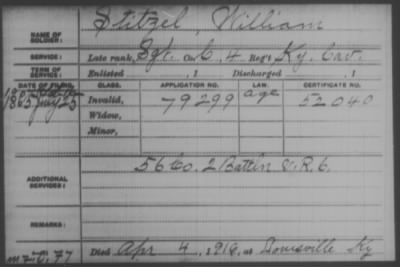 Stitzel, William
NAME OF SOLDIER:
SERVICE: Late rank, Sgt. Co. C, 4 Reg't Ky. Cav.
TERM OF SERVICE: Enlisted , 1 Discharged , 1
DATE OF FILING. CLASS. APPLICATION NO. LAW. CERTIFICATE NO.
1865 July 25 Invalid, 79299 age 52040
Widow,
Minor,
56 Co. 2 Battln V.R.C.
ADDITIONAL SERVICES:
REMARKS:
Died Apr 4, 1916, at Louisville Ky